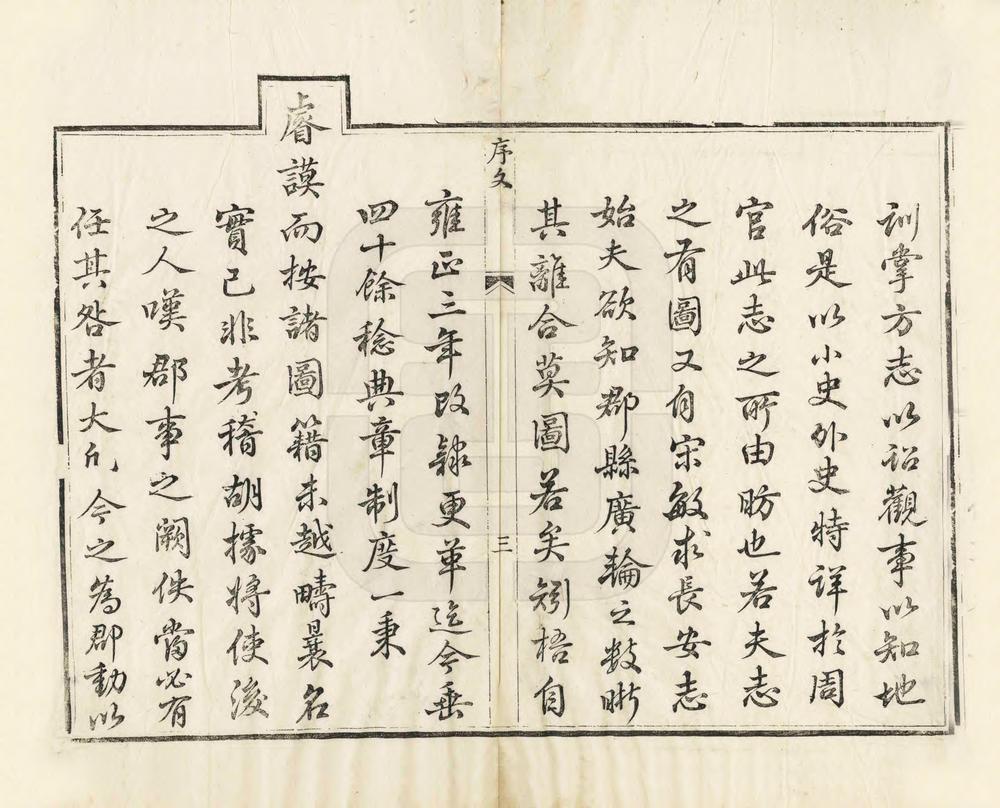 訓掌方志以詔觀事以知地
俗是以小史外史特詳於周
官此志之所由昉也若夫志
之有圖又自宋敏求長安志
始夫欲知郡縣廣輪之數晰
其離合莫圖若矣矧梧自
序文
三
雍正三年改隸更革迄今垂
四十餘稔典章制度一秉
睿謨而按諸圖籍未越疇曩名
實已非考稽胡據將使後
之人嘆郡事之闕佚當必有
任其咎者大凡今之為郡動以